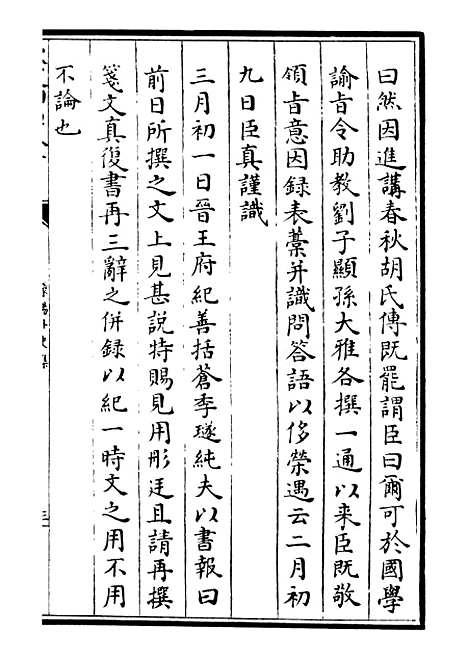 曰然因進講春秋胡氏傳既罷謂臣曰爾可於國學
諭㫖令助教劉子顯孫大雅各撰一通以来臣既敬
領㫖意因録表藁并識問答語以侈榮遇云二月初
九日臣真謹識
三月初一日晉王府紀善括蒼季璲純夫以書報曰
前日所撰之文上見甚説特賜見用形廷且請再撰
箋文真復書再三辭之併録以紀一時文之用不用
不論也